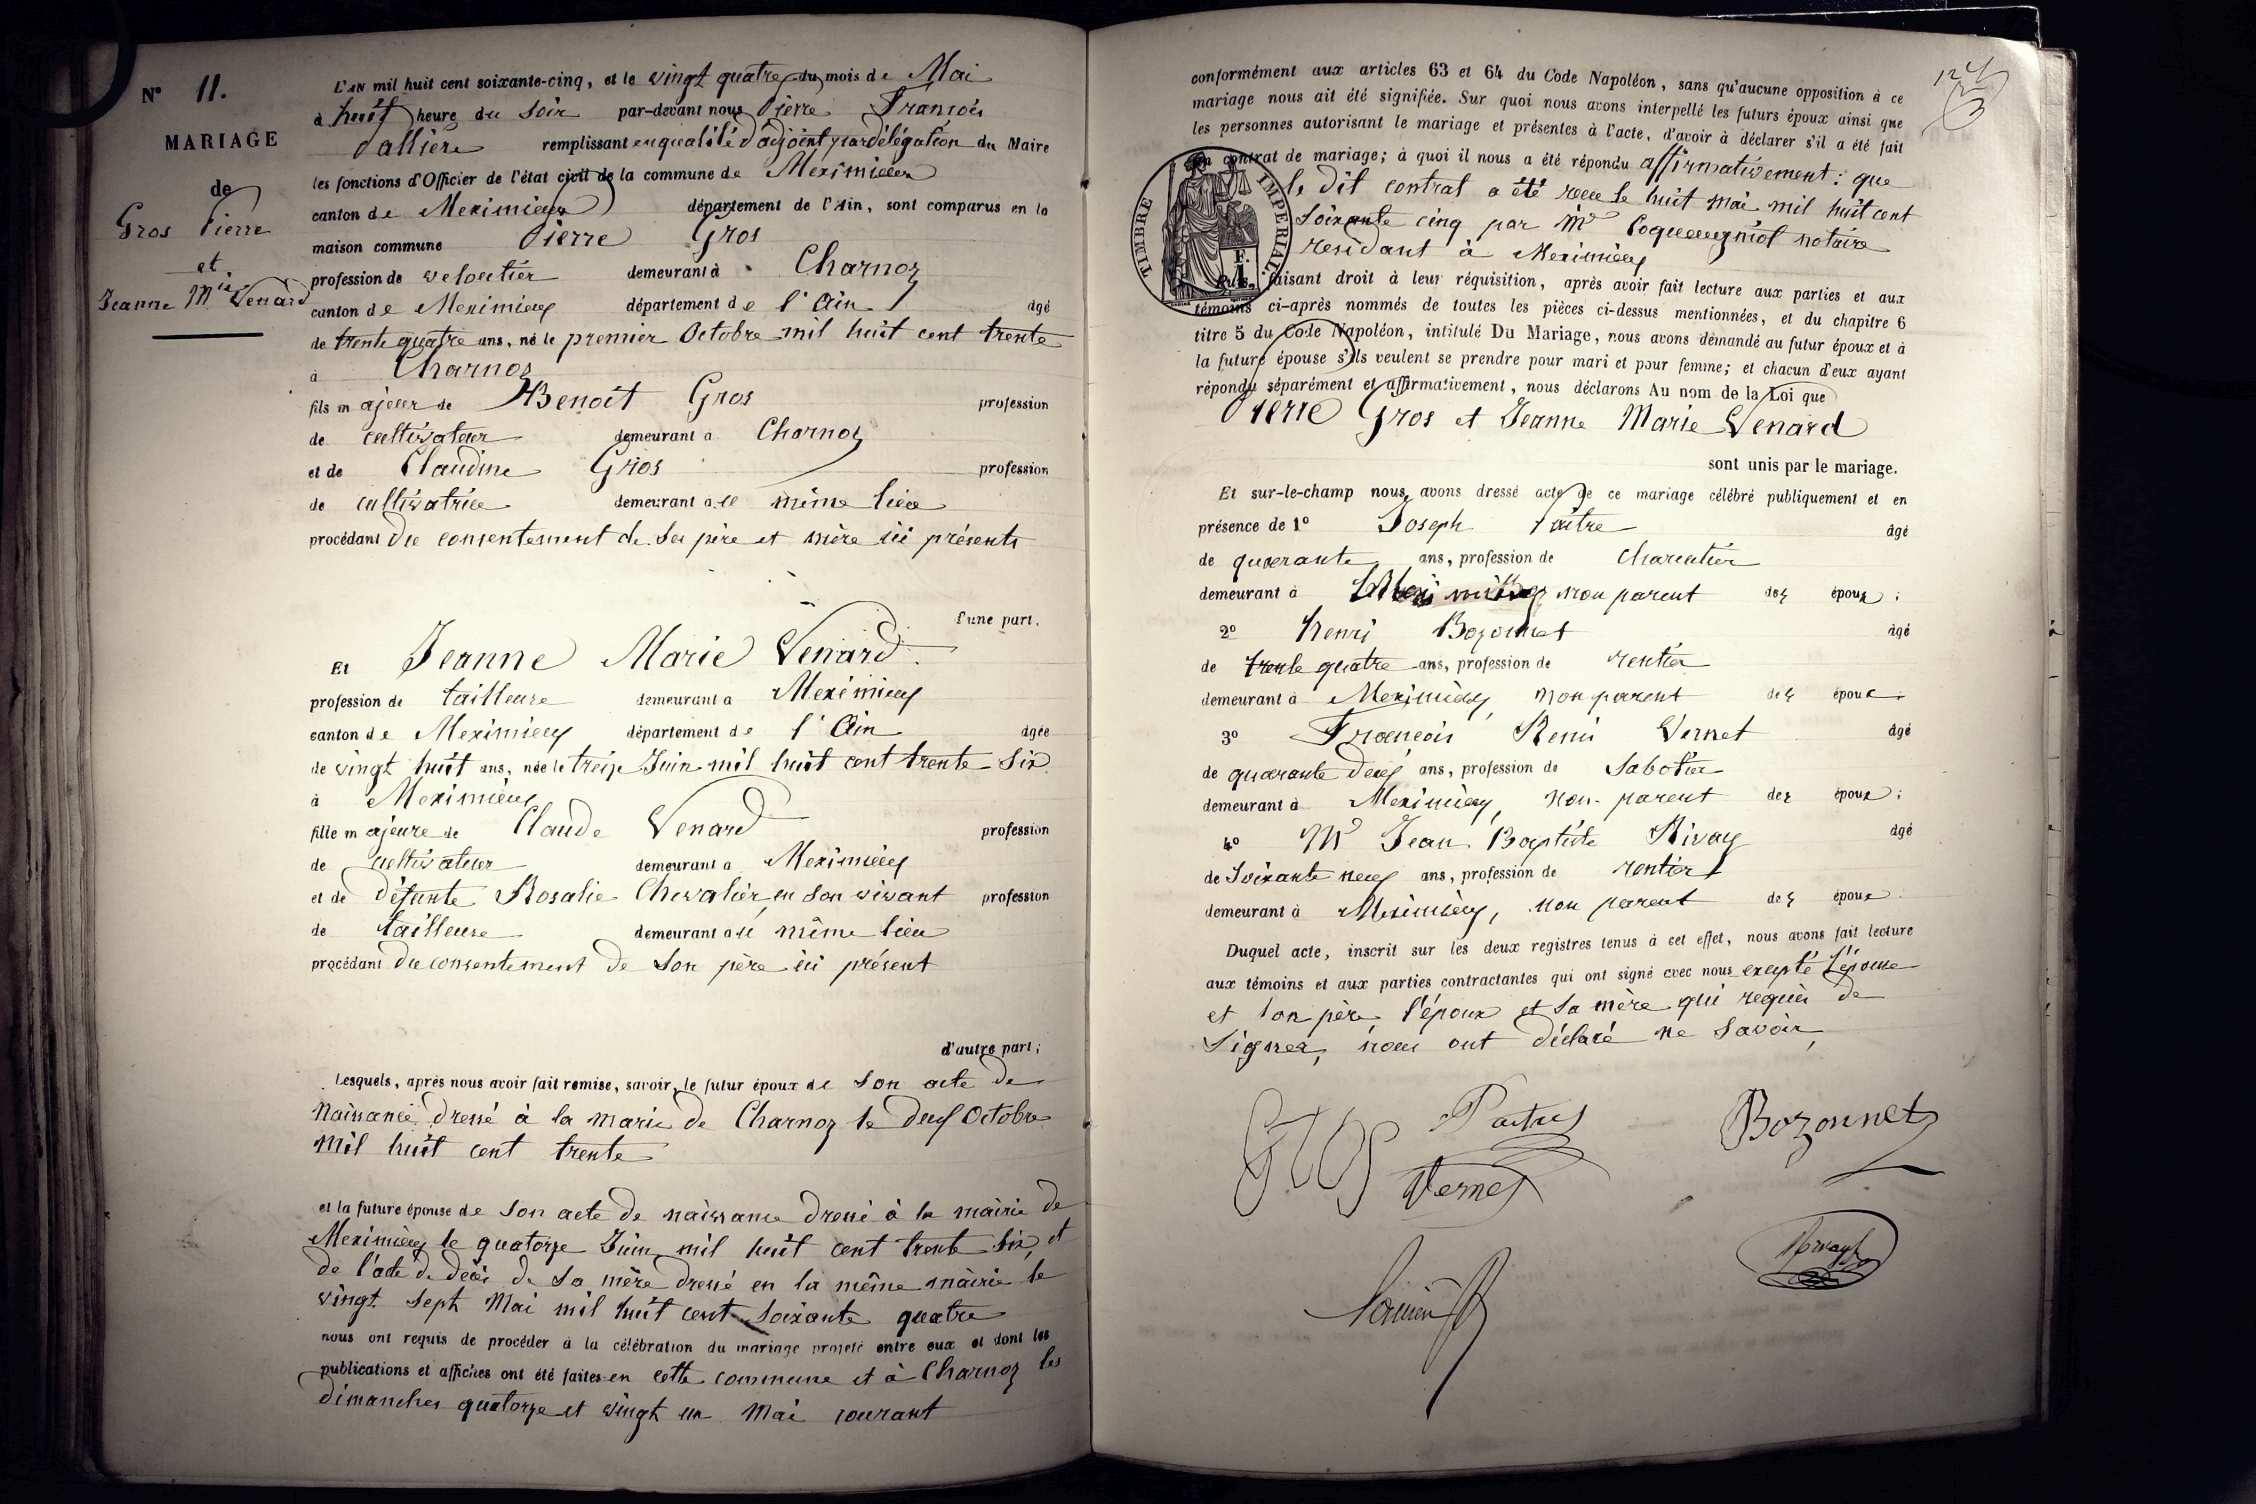 N° 11.
MARIAGE
de
Gros Pierre
et
Jeanne Mie Venard
L'AN mil huit cent soixante-cinq, et le vingt quatre du mois de Mai
à huit heure du soir par-devant nous Pierre François
remplissant en qualité d'adjoint par délégation du Maire
les fonctions d'Officier de l'état civil de la commune de Meximieux
canton de Meximieux département de l'Ain, sont comparus en la
maison commune Pierre Gros
profession de veloutier demeurant à Charnoz
canton de Meximieux département de l'Ain âgé
de trente quatre ans, né le premier Octobre mil huit cent trente
à Charnoz
fils majeur de Benoit Gros profession
de cultivateur demeurant à Charnoz
et de Claudine Gros profession
de cultivatrice demeurant au même lieu
procédant du consentement de ses père et mère ici présents
d'une part.
Et Jeanne Marie Venard
profession de tailleuse demeurant à Meximieux
canton de Meximieux département de l'Ain âgée
de vingt huit ans, née le treize Juin mil huit cent trente six
à Meximieux
fille majeure de Claude Venard profession
de cultivateur demeurant à Meximieux
et de défunte Rosalie Chevalier, en son vivant profession
de tailleuse demeurant au même lieu
procédant du consentement de son père ici présent
d'autre part;
Lesquels, après nous avoir fait remise, savoir, le futur époux de son acte de
Naissance dressé à la marie de Charnoz le deux Octobre
mil huit cent trente
et la future épouse de son acte de naissance dressé à la mairie de
Meximieux le quatorze Juin mil huit cent trente six, et
de l'acte de décès de sa mère dressé en la même mairie le
vingt sept Mai mil huit cent soixante quatre
nous ont requis de procéder à la célébration du mariage projeté entre eux et dont les
publications et affiches ont été faites en cette commune et à Charnoz les
dimanches quatorze et vingt un Mai courant
conformément aux articles 63 et 64 du Code Napoléon, sans qu'aucune opposition à ce
mariage nous ait été signifiée. Sur quoi nous avons interpellé les futurs époux ainsi que
les personnes autorisant le mariage et présentes à l'acte, d'avoir à déclarer s'il a été fait
un contrat de mariage; à quoi il nous a été répondu affirmativement: que
le dit contrat a été reçu le huit mai mil huit cent
soixante cinq par Me notaire
residant à Meximieux
TIMBRE IMPERIAL
Puis, faisant droit à leur réquisition, après avoir fait lecture aux parties et aux
témoins ci-après nommés de toutes les pièces ci-dessus mentionnées, et du chapitre 6
titre 5 du Code Napoléon, intitulé Du Mariage, nous avons demandé au futur époux et à
la future épouse s'ils veulent se prendre pour mari et pour femme; et chacun d'eux ayant
répondu séparément et affirmativement, nous déclarons Au nom de la Loi que
Pierre Gros et Jeanne Marie Venard
sont unis par le mariage.
Et sur-le-champ nous avons dressé acte de ce mariage célébré publiquement et en
présence de 1° Joseph âgé
de quarante ans, profession de
demeurant à Meximieux non parent des époux;
2° Henri Bozonnet âgé
de trente quatre ans, profession de rentier
demeurant à Meximieux, non parent des époux.
3° François Remi Vernet âgé
de quarante deux ans, profession de Sabotier
demeurant à Meximieux, non parent des époux;
4° Mr Jean Baptiste Rivay âgé
de soixante neuf ans, profession de rentier
demeurant à Meximieux, non parent des époux
Duquel acte, inscrit sur les deux registres tenus à cet effet, nous avons fait lecture
aux témoins et aux parties contractantes qui ont signé avec nous excepté l'épouse
et son père, l'époux et sa mère qui requis de
signer, nous ont déclaré ne savoir,
Gros
Bozonnet
Vernet